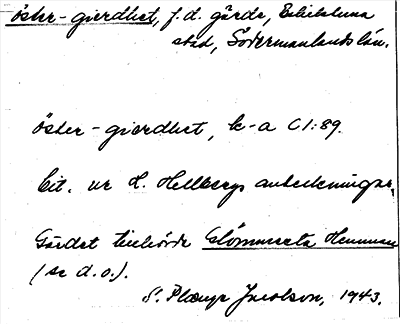 öster-gierdhet, f.d. gärde, Eskilstuna
stad, Södermanlands län.
öster-gierdhet, k-a C1:89.
Cit. ur L. Hellbergs anteckningar.
Gärdet tillhörde Hemman
(se d.o.).
S. Jacobson, 1943.